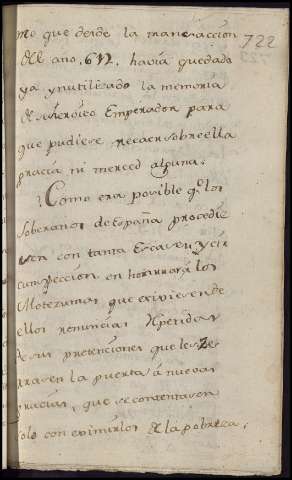 me que desde la transaccion
722
del año, 612, havia quedado
ya ynutilizado la memoria
de su heroico Emperador para
que pudiese recaer sobre ella
gracia ni merced alguna.
¿Como era posible q.e los
soberanos de España procedie
sen con tanta Escases y cir
cumspeccion en honrrar á los
Motezumas, que exipiesen de
ellos renuncias
de sus pretenciones que les ze
rrasen la puerta á nuevas
gracias, que se contentasen
solo con eximirlos de la pobreza,